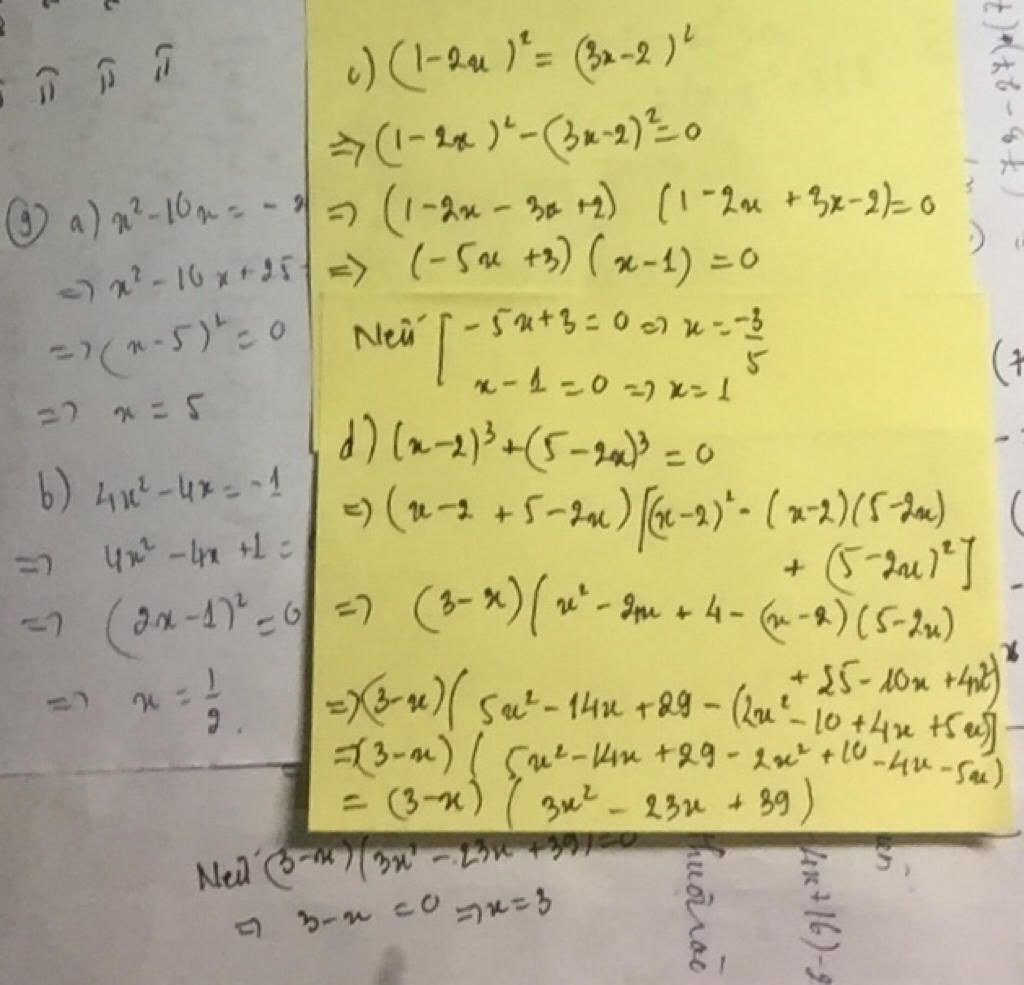 π π π
9) a) x² - 10x = -2
=> x² - 10x + 25
=> (x - 5)² = 0
=> x = 5
b) 4x² - 4x = -1
=> 4x² - 4x + 1 =
=> (2x - 1)² = 0
=> x = 1/2.
c) (1 - 2x)² = (3x - 2)²
=> (1 - 2x)² - (3x - 2)² = 0
=> (1 - 2x - 3x + 2) (1 - 2x + 3x - 2) = 0
=> (-5x + 3) (x - 1) = 0
Nếu [ -5x + 3 = 0 => x = -3/5
x - 1 = 0 => x = 1
d) (x - 2)³ + (5 - 2x)³ = 0
=> (x - 2 + 5 - 2x) [(x - 2)² - (x - 2)(5 - 2x)
+ (5 - 2x)²]
=> (3 - x) (x² - 2x + 4 - (x - 2)(5 - 2x)
+ 25 - 10x + 4x²)
=> (3 - x) ( 5x² - 14x + 29 - (2x² - 10 + 4x + 5x)]
=> (3 - x) ( 5x² - 14x + 29 - 2x² + 10 - 4x - 5x)
= (3 - x) ( 3x² - 23x + 39)
Nếu (3 - x)(3x² - 23x + 39) = 0
=> 3 - x = 0 => x = 3
4x + 16) - 2